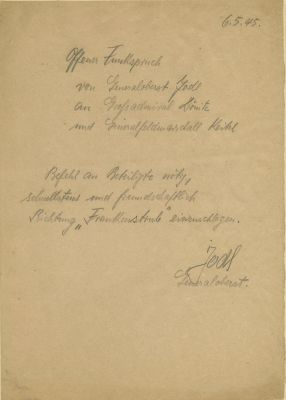 6.5.45.
Offener Funkspruch
von Generaloberst Jodl
an Großadmiral Dönitz
und Generalfeldmarschall Keitel
Befehl an Beteiligte nötig,
schnellstens und freundschaftlich
Richtung „Frankenstrub" einzuschlagen.
Jodl
Generaloberst.